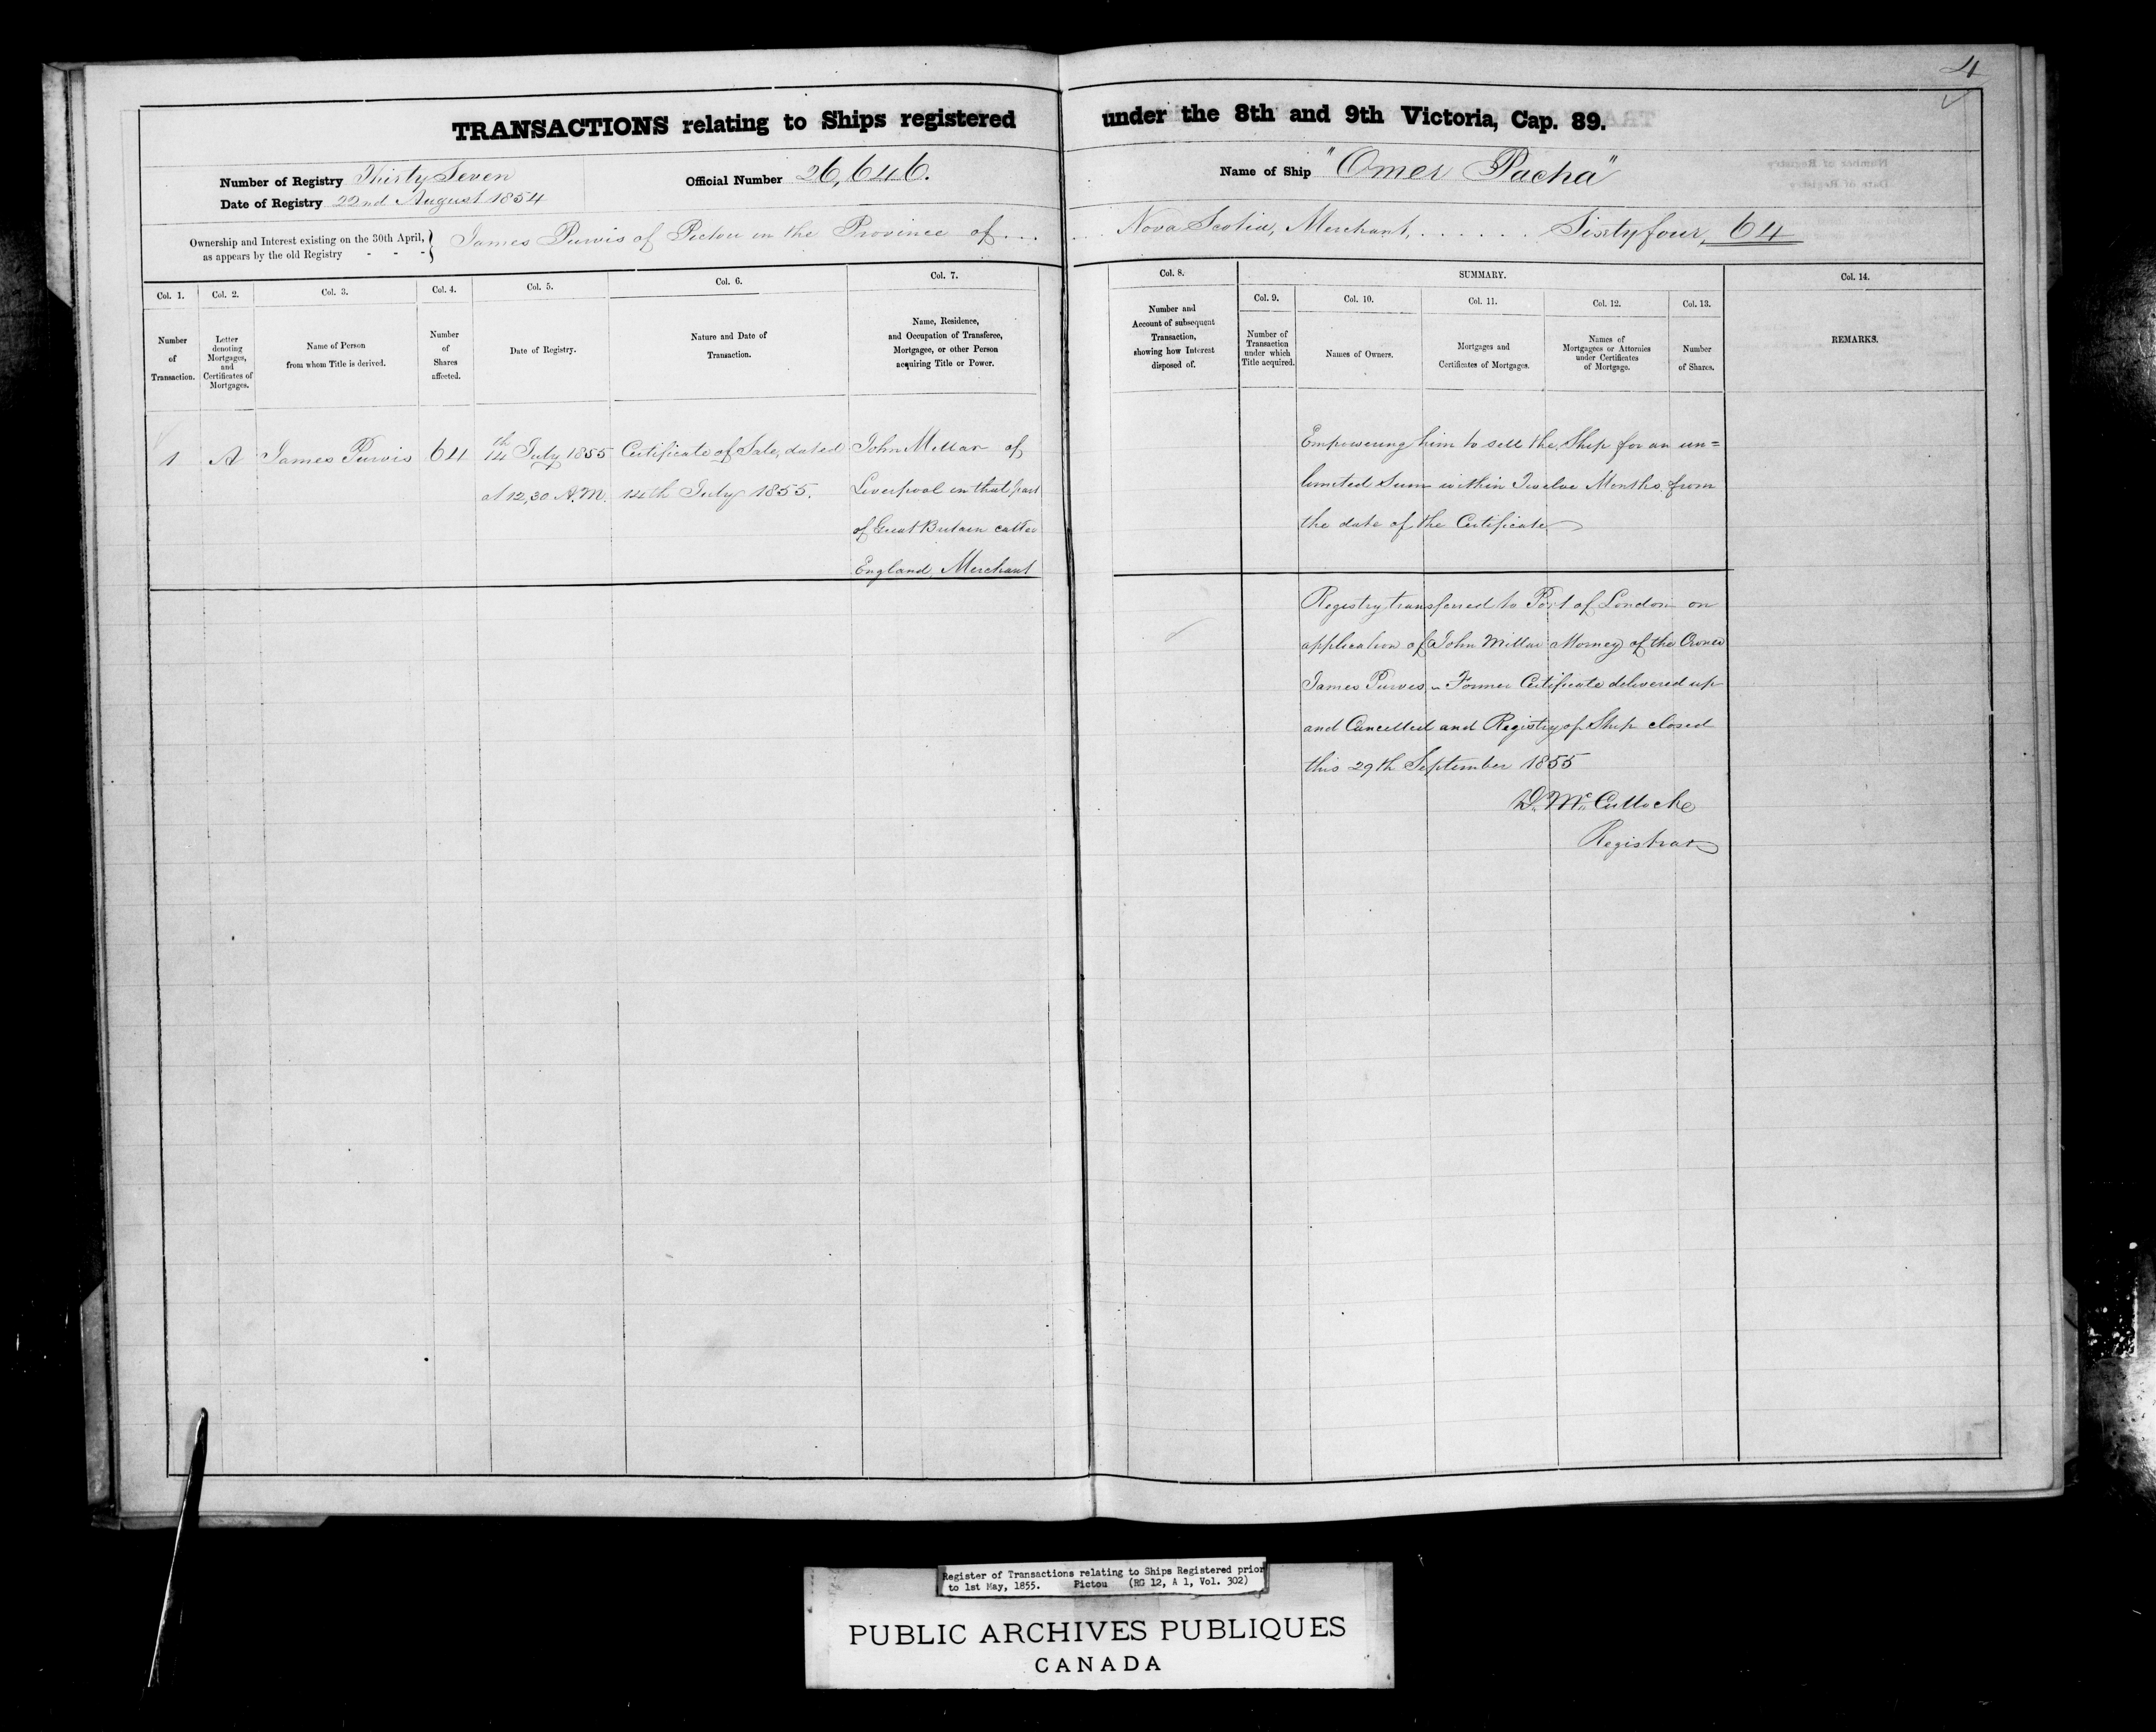 4
TRANSACTIONS relating to Ships registered under the 8th and 9th Victoria, Cap. 89.
Number of Registry Thirty Seven
Date of Registry 22nd August 1854
Official Number 26,646.
Name of Ship "Omer Pacha"
Ownership and Interest existing on the 30th April, as appears by the old Registry - - - } James Purvis of Pictou in the Province of ... Nova Scotia, Merchant, . . . . . . Sixtyfour, 64
SUMMARY.
Col. 1.
Number
of
Transaction.
Col. 2.
Letter
denoting
Mortgages,
and
Certificates of
Mortgages.
Col. 3.
Name of Person
from whom Title is derived.
Col. 4.
Number
of
Shares
affected.
Col. 5.
Date of Registry.
Col. 6.
Nature and Date of
Transaction.
Col. 7.
Name, Residence,
and Occupation of Transferee,
Mortgagee, or other Person
acquiring Title or Power.
Col. 8.
Number and
Account of subsequent
Transaction,
showing how Interest
disposed of.
Col. 9.
Number of
Transaction
under which
Title acquired.
Col. 10.
Names of Owners.
Col. 11.
Mortgages and
Certificates of Mortgages.
Col. 12.
Names of
Mortgagees or Attornies
under Certificates
of Mortgage.
Col. 13.
Number
of Shares.
Col. 14.
REMARKS.
1
A
James Purvis
64
14th July 1855
at 12,30 A.M.
Certificate of Sale, dated
14th July 1855.
John Millar of
Liverpool in that part
of Great Britain called
England, Merchant
Empowering him to sell the Ship for an un=
limited Sum within Twelve Months from
the date of the Certificate
Registry transferred to Port of London on
application of John Millar Attorney of the Owner
James Purves - Former Certificate delivered up
and Cancelled and Registry of Ship closed
this 29th September 1855
D. McCulloche
Registrar
Register of Transactions relating to Ships Registered prior
to 1st May, 1855. Pictou (RG 12, A 1, Vol. 302)
PUBLIC ARCHIVES PUBLIQUES
CANADA